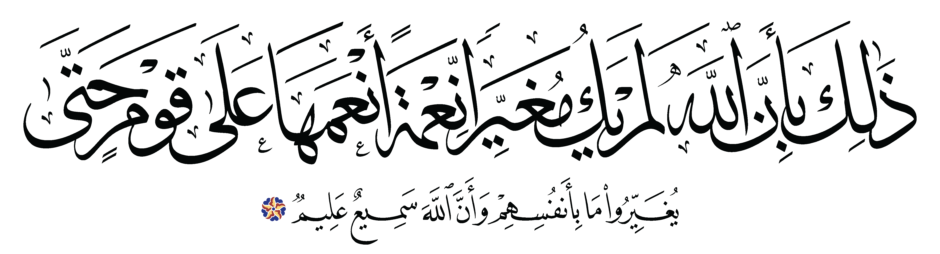 ذَٰلِكَ بِأَنَّ ٱللَّهَ لَمْ يَكُ مُغَيِّرًا نِّعْمَةً أَنْعَمَهَا عَلَىٰ قَوْمٍ حَتَّىٰ
يُغَيِّرُوا۟ مَا بِأَنفُسِهِمْ وَأَنَّ ٱللَّهَ سَمِيعٌ عَلِيمٌ